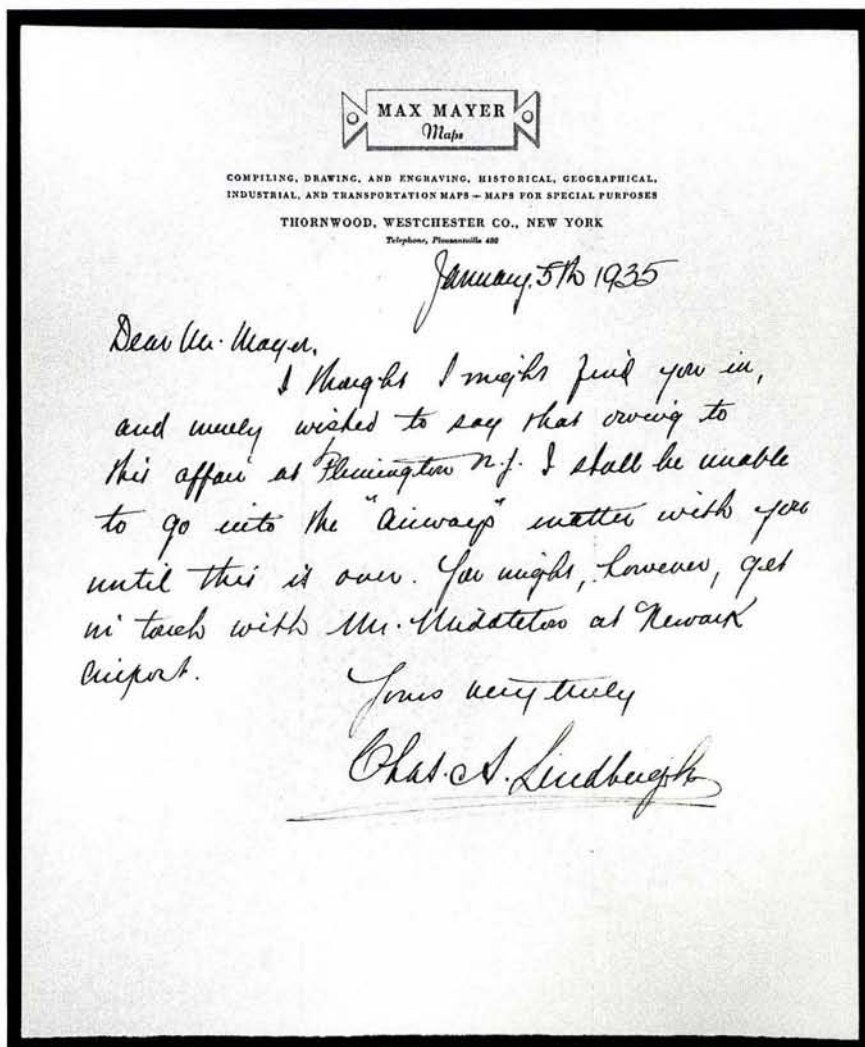 MAX MAYER
Maps
COMPILING, DRAWING, AND ENGRAVING, HISTORICAL, GEOGRAPHICAL,
INDUSTRIAL, AND TRANSPORTATION MAPS — MAPS FOR SPECIAL PURPOSES
THORNWOOD, WESTCHESTER CO., NEW YORK
Telephone, Pleasantville 480
January. 5th 1935
Dear Mr. Mayer,
I thought I might find you in,
and merely wished to say that owing to
this affair at Flemington N.J. I shall be unable
to go into the "Airways" matter with you
until this is over. You might, however, get
in touch with Mr. Middleton at Newark
Airport.
Yours very truly
Chas. A. Lindbergh